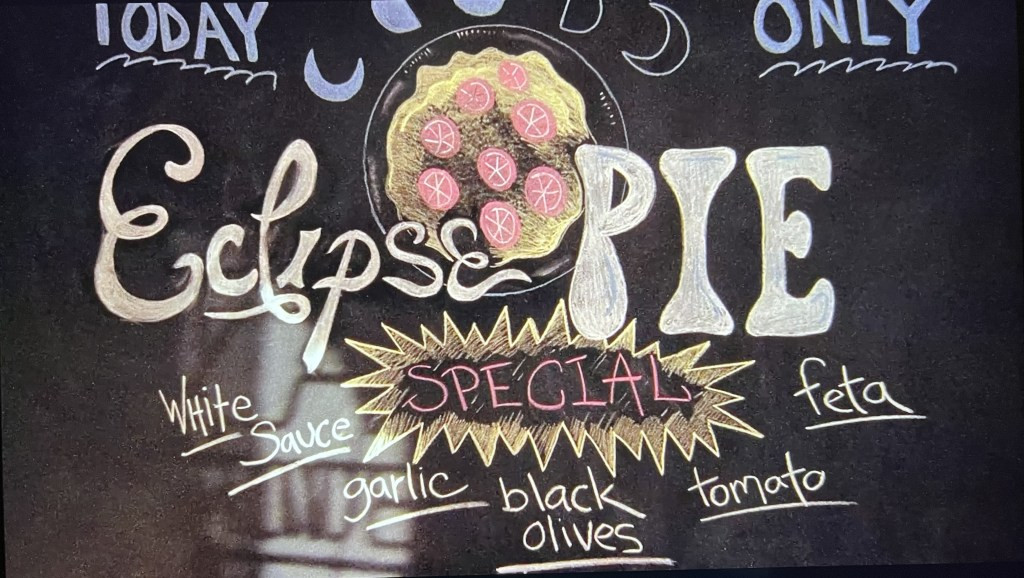 TODAY ONLY
Eclipse PIE
SPECIAL
White Sauce
garlic
black olives
tomato
feta